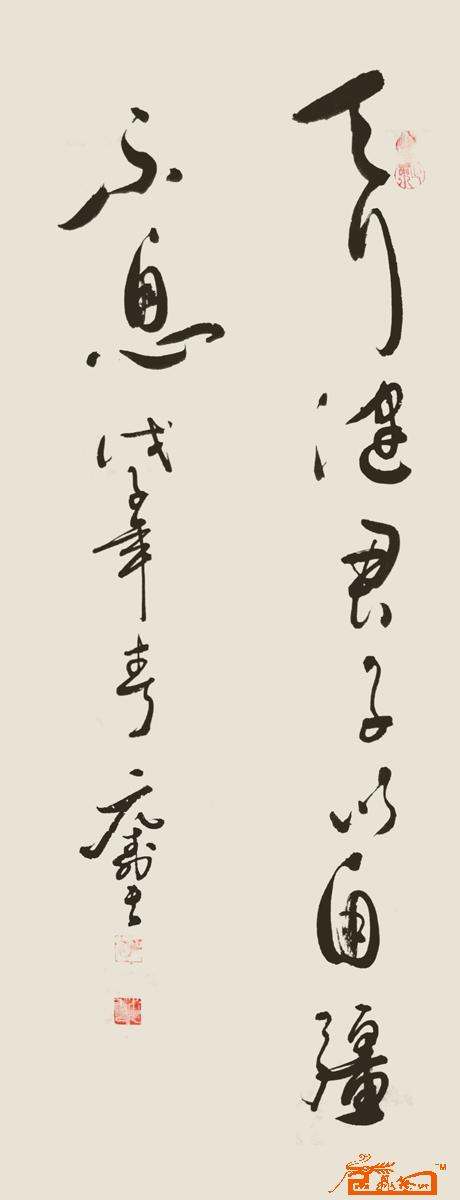 天行健君子以自彊
不息 戊子年春
TM